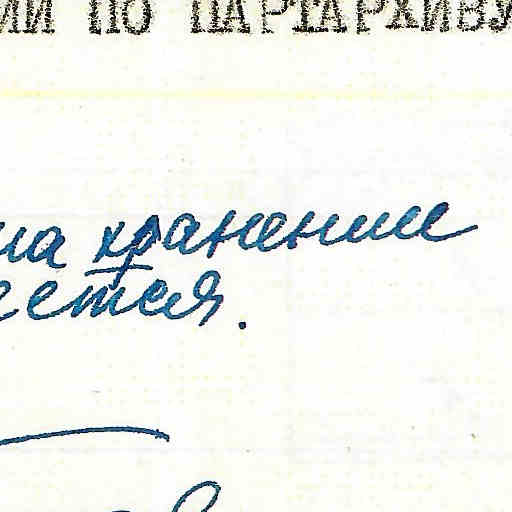 ИИ ПО ПАРТАРХИВУ
на хранении
ется.